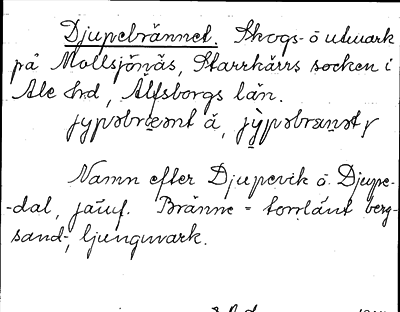 Djupebrännet. Skogs- o utmark
på Mollsjönäs, Starrkärrs socken i
Ale hd, Älfsborgs län.
jypəbrænt å, jypəbrænət,
Namn efter Djupevik o Djupe-
-dal, jämf. Bränne = torrlänt berg-
sand-, ljungmark.